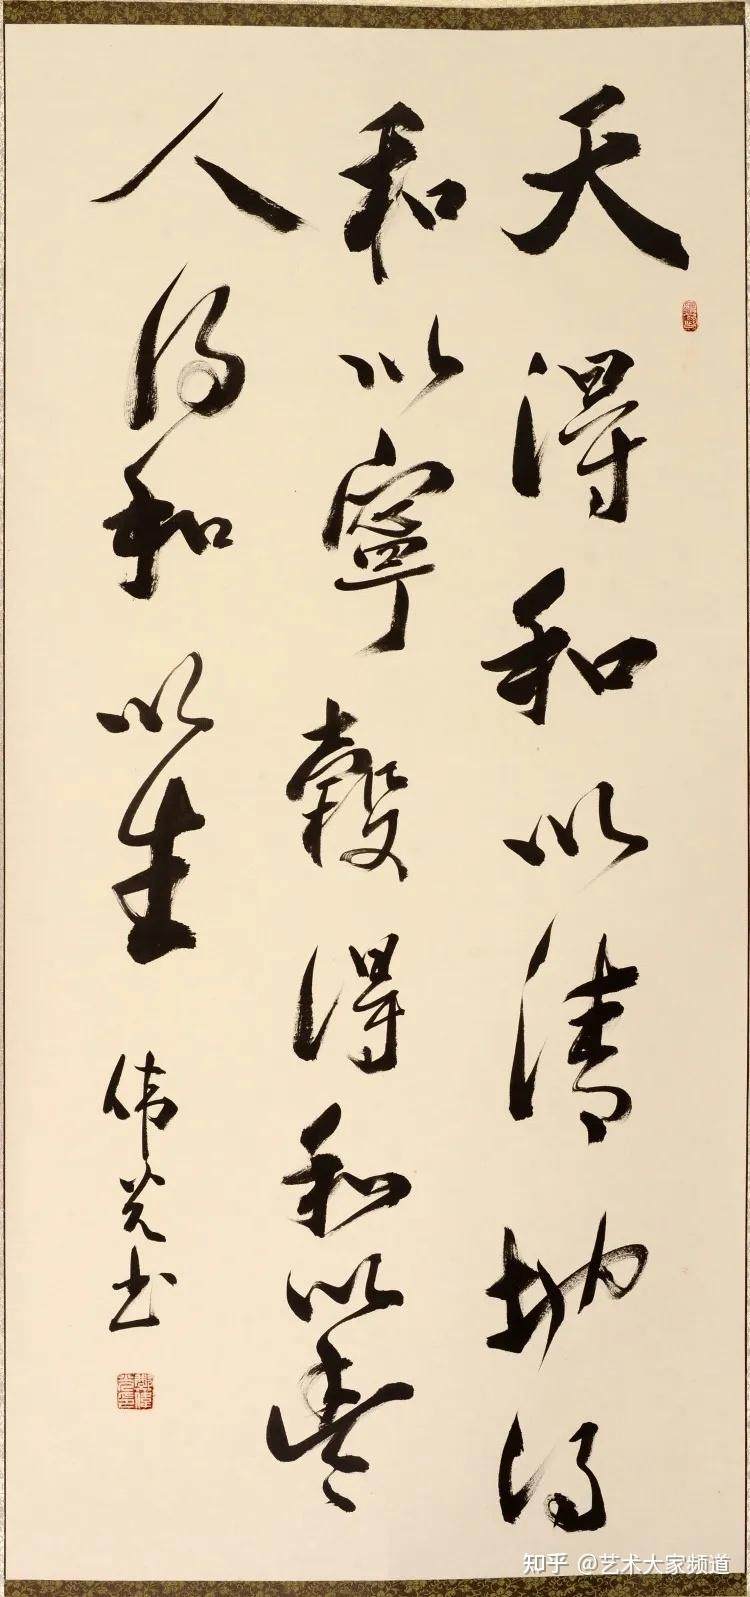 天得和以清地得
和以寧穀得和以盡
人得和以生
伟光书
知乎 @艺术大家频道